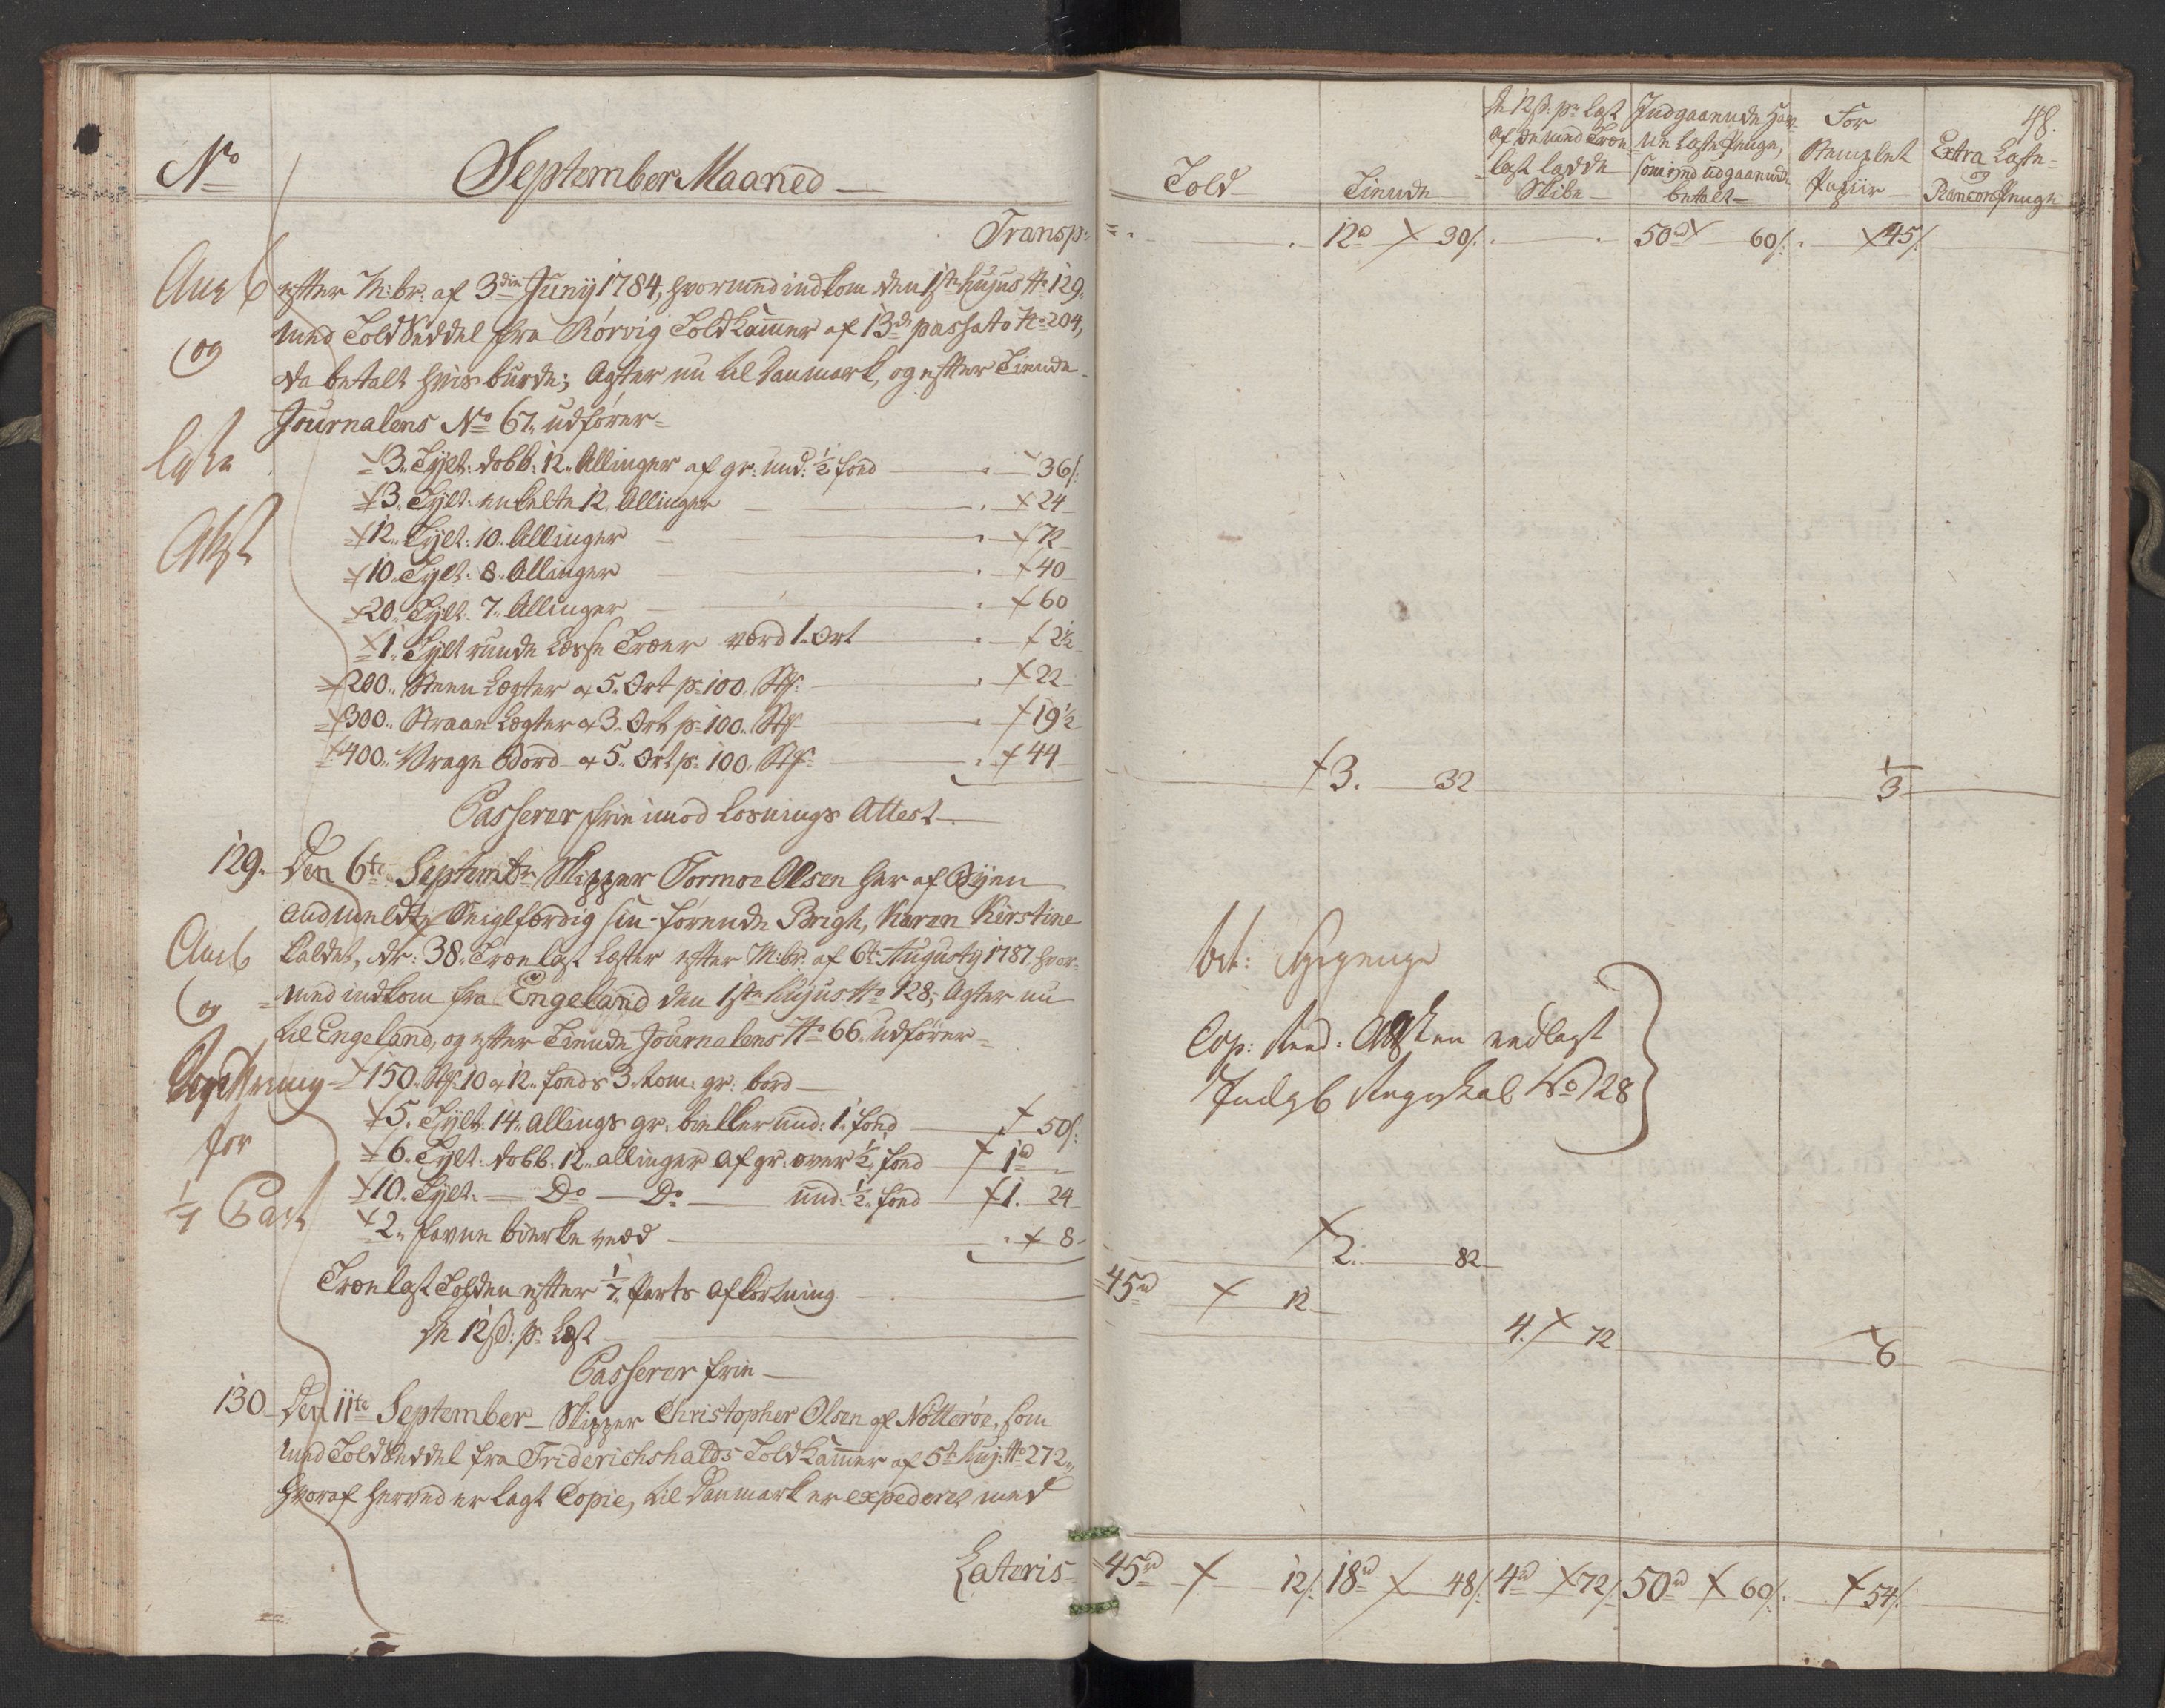 No
September Maaned
Transp:
efter M:br: af 3die Juny 1784, hvormed indkom den 1ste hujus No 129,
med Told Seddel fra Rörvig Told Kammer af 13de passato No 204,
da betalt hvis burde; Agter nu til Danmark, og efter Tiende
Journalens No 67 udförer
3 Tylt: dobb: 12 Allinger af gr: und: 1/2 fod 36 s:
3 Tylt: enkelte 12 Allinger 24
12 Tylt: 10 Allinger 72
10 Tylt: 8 Allinger 40
20 Tylt: 7 Allinger 60
1 Tylt runde Lesse Træer værd 1 Ort 2 1/2
200 Steen Lægter a 5 Ort pr 100 St: 22
300 Straae Lægter a 3 Ort pr 100 St: 19 1/2
400 Vrage Bord a 5 Ort pr 100 St: 44
Passerer frie imod losnings Attest
Aug
og
129. Den 6te Septembr Skipper Tormoe Olsen her af Byen
andmeldte Seiglfærdig sin förende Brigh, Karen Kirstine
kaldet, dr: 38 Træelast Læster efter M:br: af 6te Augusty 1787 hvor-
med indkom fra Engeland den 1ste hujus No 128, Agter nu
til Engeland, og efter Tiende Journalens No 66 udförer
150 St: 10 a 12 fods 3 tom: gr: bord
5 Tylt: 14 allings gr: bielker und: 1 fod 50 s:
6 Tylt: dobb: 12 allinger af gr: over 1/2 fod 1 d
10 Tylt: Do Do und: 1/2 fod 1. 24
2 favne birke ved 8
Trælast Tolden efter 1/7 parts afkortning
De 12 s: pr Læst
Passerer frie
og
for
1/7 Part
130 Den 11te September Skipper Christopher Olsen af Nötteröe, som
med Told Seddel fra Friderichshalds Told Kammer af 5te huj: No 272,
hvoraf herved er lagt Copie, til Danmark er expederet med
Lateris
48.
Told
Tiende
De 12 s: pr Læst
af de med Træe
last ladde
Skibe
Indgaaende Hav-
ne Læste Penge,
som ind udgaaende
betalt
For
Stemplet
Papiir
Extra Læste-
og
Rancon Penge
12 d 30 s: 50 d 60 s: 45 s:
3. 32 3
bet:
Cop: vedlagt
Indgb Regnskab No 128
2. 82
45 d 12
4. 72 6
45 d 12 s: 18 d 48 s: 4 d 72 s: 50 d 60 s: 54 s: